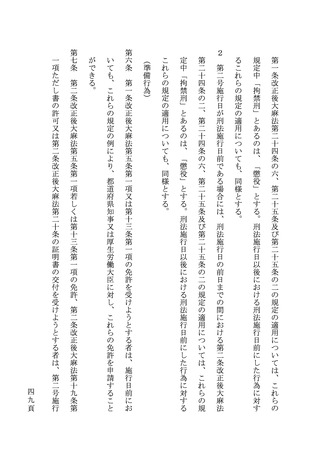 第一条改正後大麻法第二十四条の六、第二十五条及び第二十五条の二の規定の適用については、これらの
規定中「拘禁刑」とあるのは、「懲役」とする。刑法施行日以後における刑法施行日前にした行為に対す
るこれらの規定の適用についても、同様とする。
2 第二号施行日が刑法施行日前である場合には、刑法施行日の前日までの間における第二条改正後大麻法
第二十四条の二、第二十五条及び第二十五条の二の規定の適用については、これらの規
定中「拘禁刑」とあるのは、「懲役」とする。刑法施行日以後における刑法施行日前にした行為に対する
これらの規定の適用についても、同様とする。
(準備行為)
第六条 第一条改正後大麻法第五条第一項又は第十三条第一項の免許を受けようとする者は、施行日前にお
いても、これらの規定の例により、都道府県知事又は厚生労働大臣に対し、これらの免許を申請すること
ができる。
第七条 第二条改正後大麻法第五条第一項若しくは第十三条第一項の免許、第二条改正後大麻法第十九条第
一項ただし書の許可又は第二条改正後大麻法第二十条の証明書の交付を受けようとする者は、第二号施行
四九頁